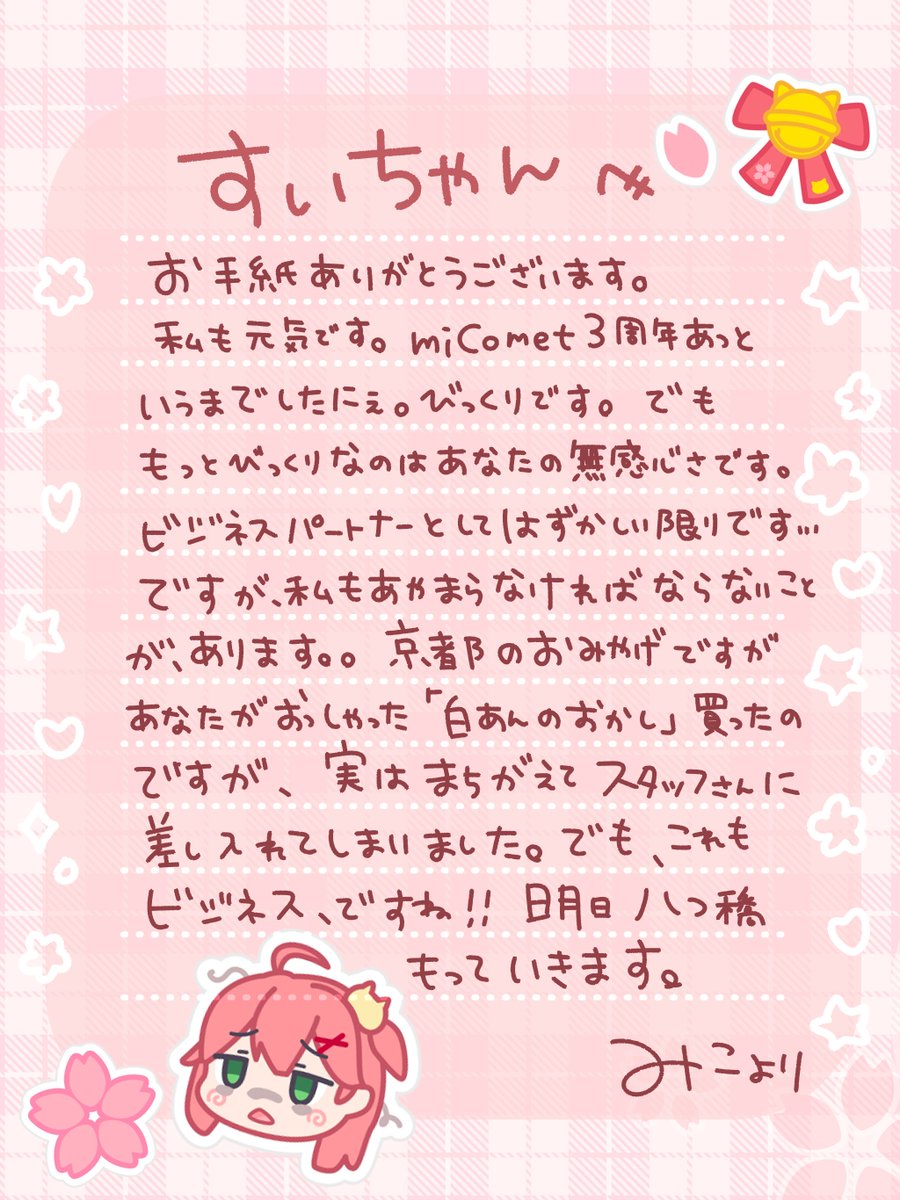 すいちゃんへ
お手紙ありがとうございます。
私も元気です。miComet3周年あっと
いうまでしたにぇ。びっくりです。でも
もっとびっくりなのはあなたの無感心さです。
ビジネスパートナーとしてはずかしい限りです…
ですが、私もあやまらなければならないこと
が、あります。。京都のおみやげですが
あなたがおっしゃった「白あんのおかし」買ったの
ですが、実はまちがえてスタッフさんに
差し入れてしまいました。でも、これも
ビジネス、ですね!! 明日八つ橋
もっていきます。
みこより